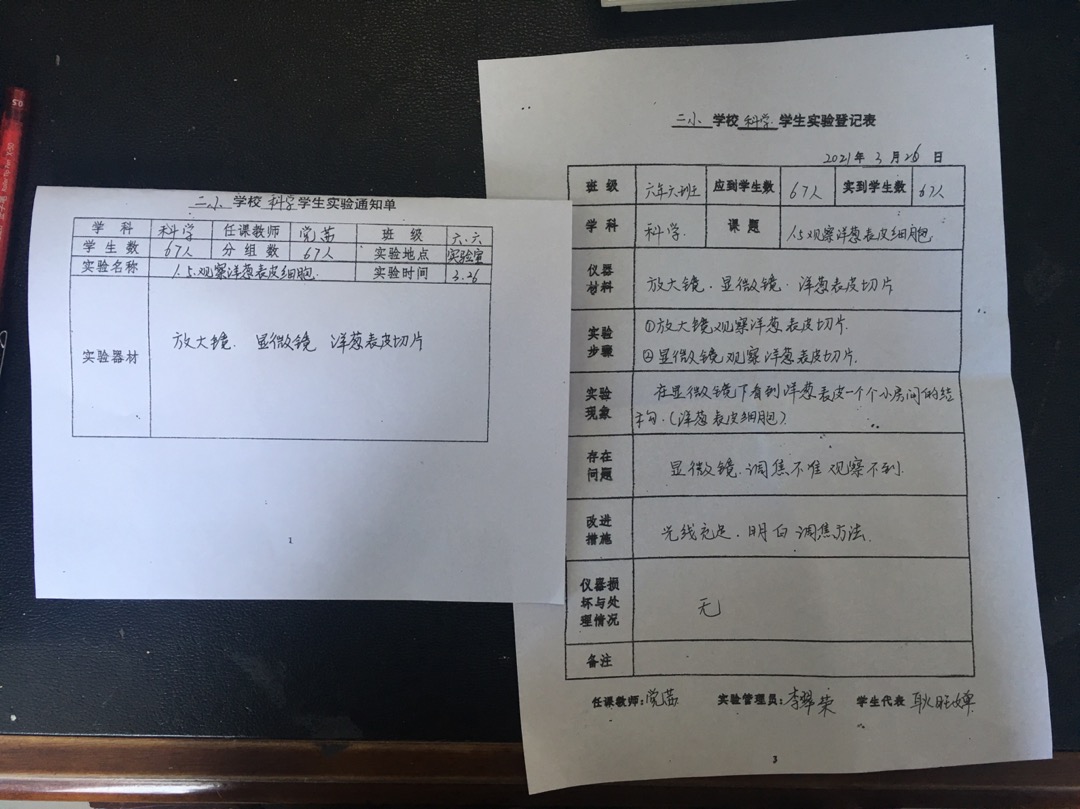 二小 学校 科学 学生实验通知单
学 科 科学 任课教师 党荔 班 级 六.六
学 生 数 67人 分 组 数 67人 实验地点 实验室
实验名称 1.5.观察洋葱表皮细胞. 实验时间 3.26
实验器材 放大镜. 显微镜 洋葱表皮切片
1
二小 学校 科学 学生实验登记表
2021年 3 月 26 日
班 级 六年六班 应到学生数 67人 实到学生数 67人
学 科 科学 课 题 1.5观察洋葱表皮细胞.
仪器
材料
放大镜.显微镜.洋葱表皮切片
实验
步骤
①放大镜观察洋葱表皮切片.
②显微镜观察洋葱表皮切片.
实验
现象
在显微镜下看到洋葱表皮一个个小房间的结
构.(洋葱表皮细胞)
存在
问题
显微镜.调焦不准 观察不到.
改进
措施
光线充足.明白调焦方法.
仪器损
坏与处
理情况
无
备注
任课教师:党荔 实验管理员:李翠荣 学生代表 耿旺婵
3